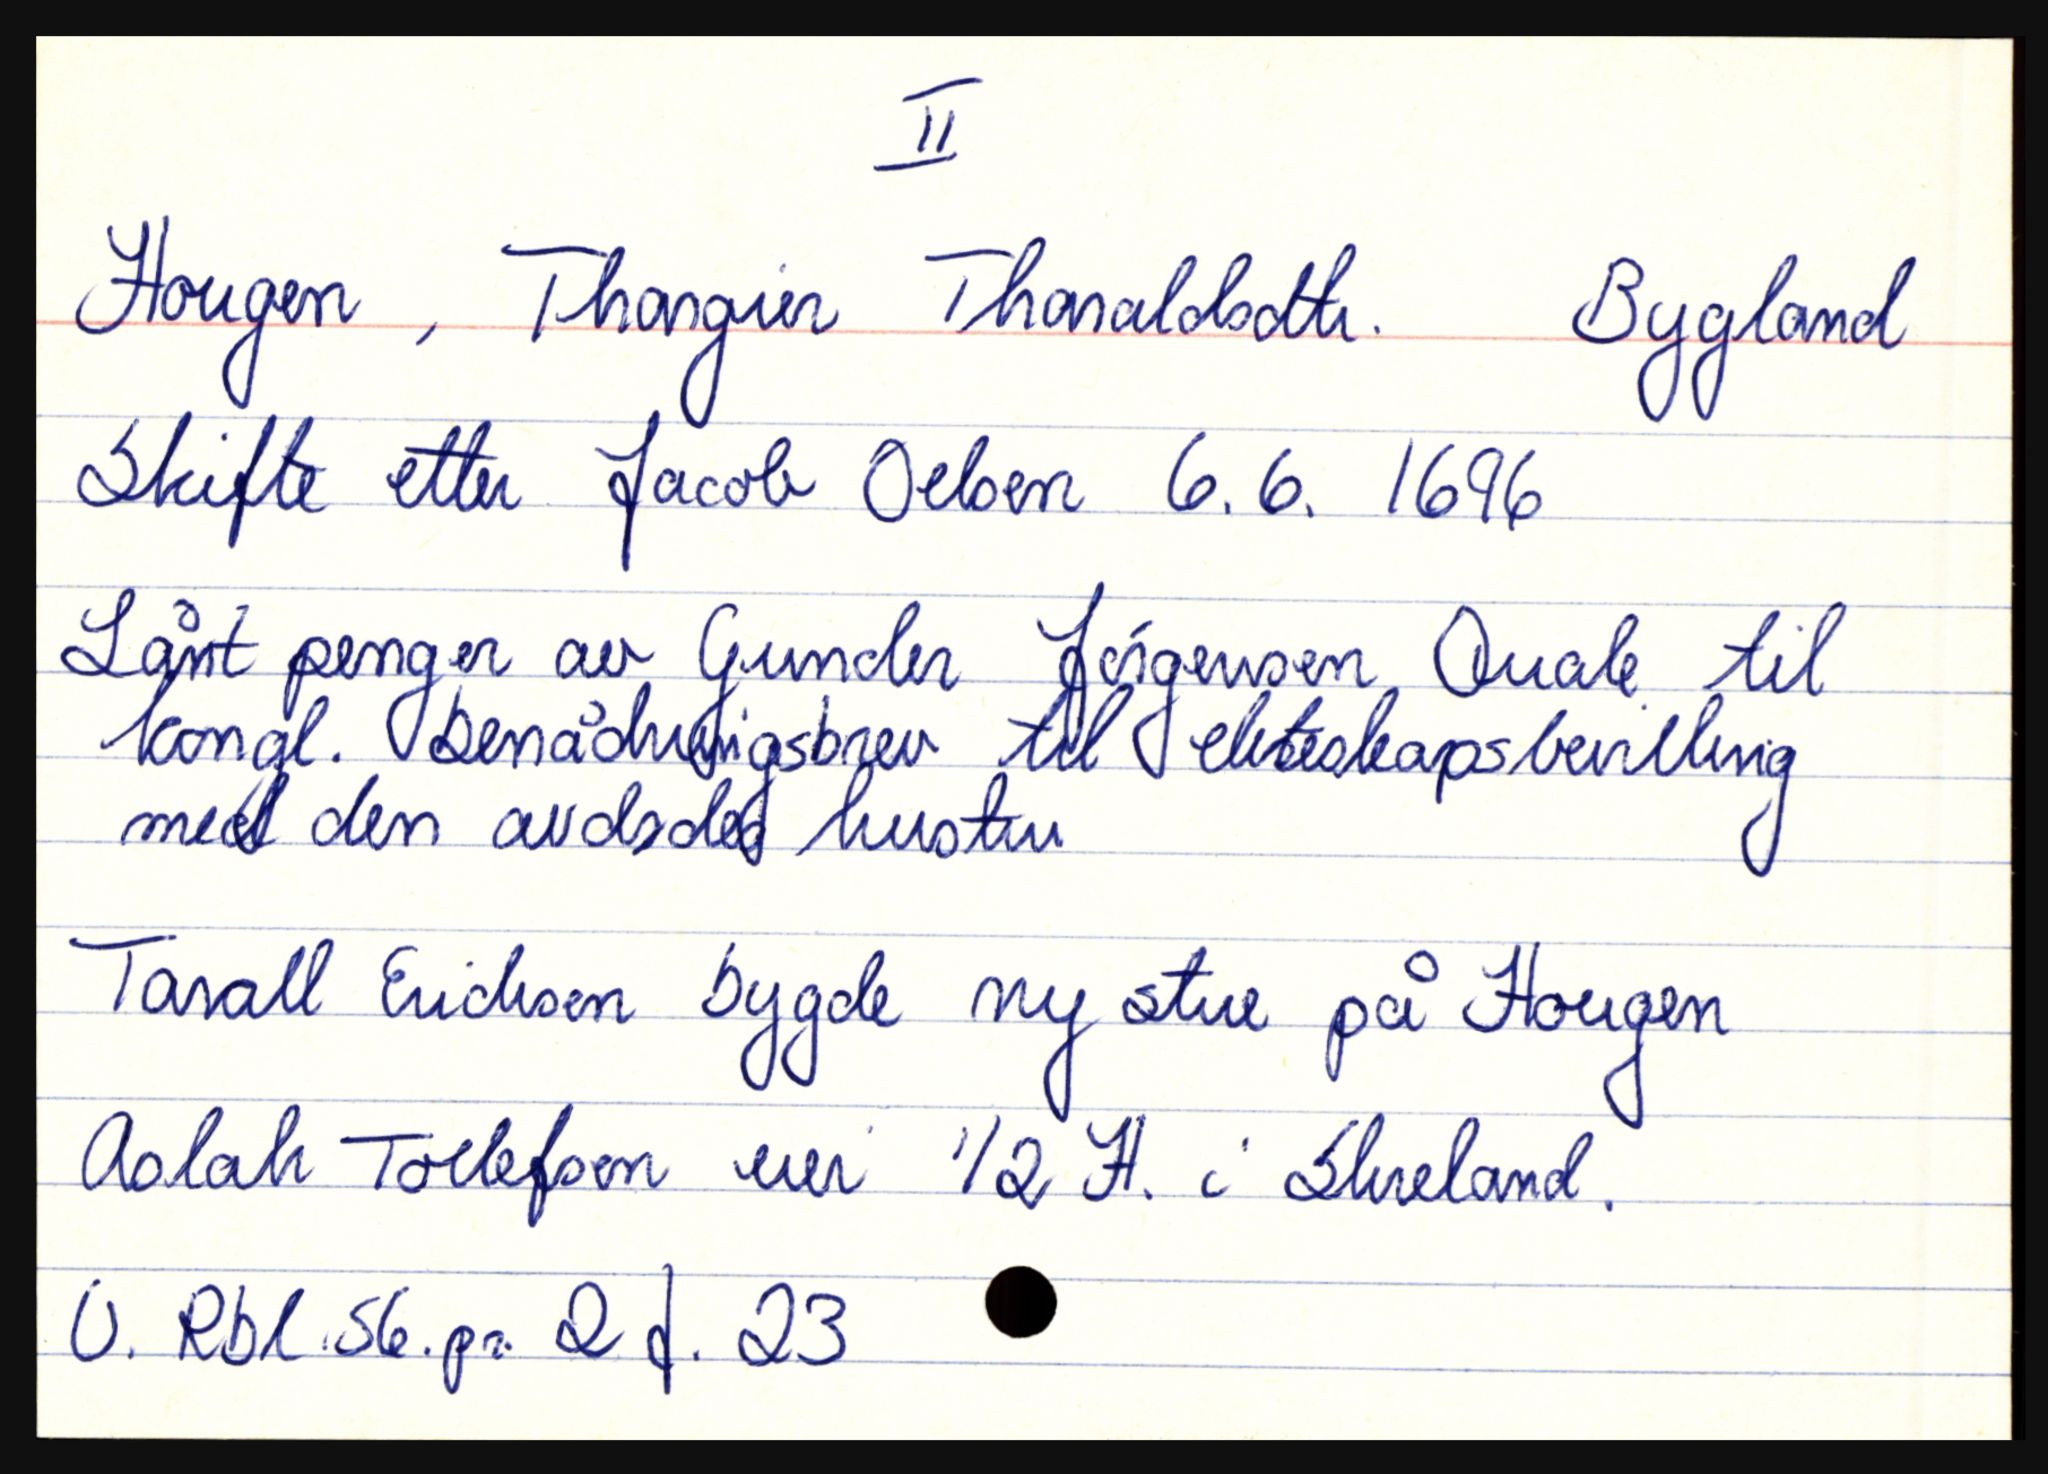 II
Hougen, Thorgier Tharaldsdtr. Bygland
Skifte etter Jacob Oelsen 6.6. 1696
Lånt penger av Gunder Jörgensen Quale til
kongl. benådningsbrev til ekteskapsbevilling
med den avdødes hustru
Tarall Erichsen bygde ny stue på Hougen
Aslak Tollefsen eier 1/2 H. i Skreland.
O. Rbl. 56. pr. 2 f. 23